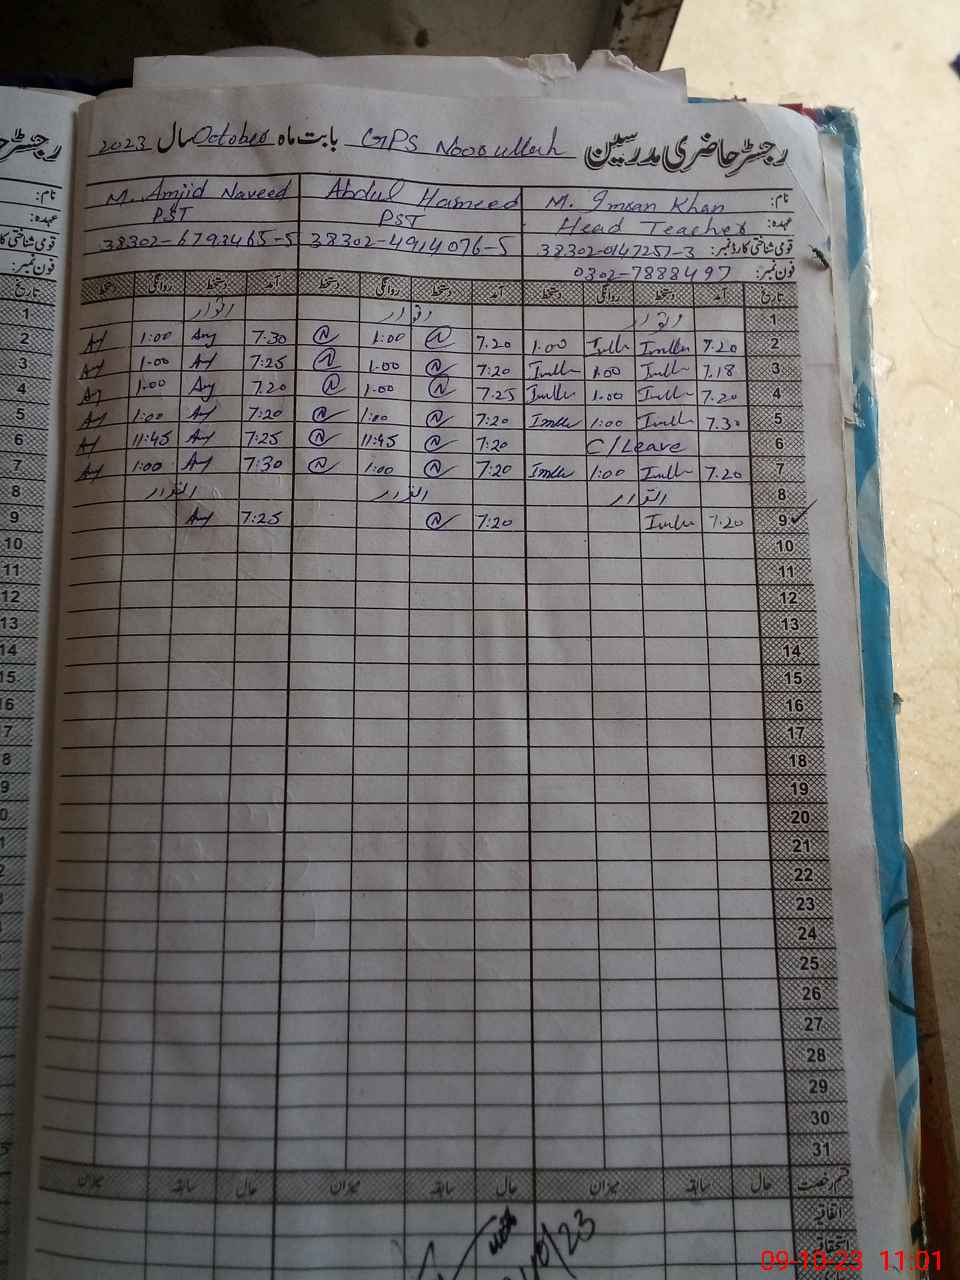 رجسٹر حاضری مدرسین GPS Nooorullah بابت ماہ October سال 2023
نام: M. Imran Khan Abdul Hameed M. Amjid Naveed
عہدہ: Head Teacher PST PST
قومی شناختی کارڈ نمبر: 38302-0147257-3 38302-4914076-5 38302-6793465-5
فون نمبر: 0302-7888497
تاریخ آمد دستخط روانگی دستخط آمد دستخط روانگی دستخط آمد دستخط روانگی دستخط
1 اتوار اتوار اتوار
2 7.20 1.00 7.20 1:00 7.30 1:00
3 7.18 1.00 7:20 1.00 7:25 1.00
4 7.20 1.00 7:25 1.00 7.20 1.00
5 7.30 1:00 7:20 1:00 7:20 1:00
6 C/Leave 7:20 11:45 7:25 11:45
7 7.20 1:00 7:20 1:00 7:30 1:00
8 اتوار اتوار اتوار
9 7.20 7:20 7:25
10
11
12
13
14
15
16
17
18
19
20
21
22
23
24
25
26
27
28
29
30
31
قسم رخصت حال سابقہ میزان حال سابقہ میزان حال سابقہ میزان
اتفاقیہ
استحقاقیہ
09-10-23 11:01